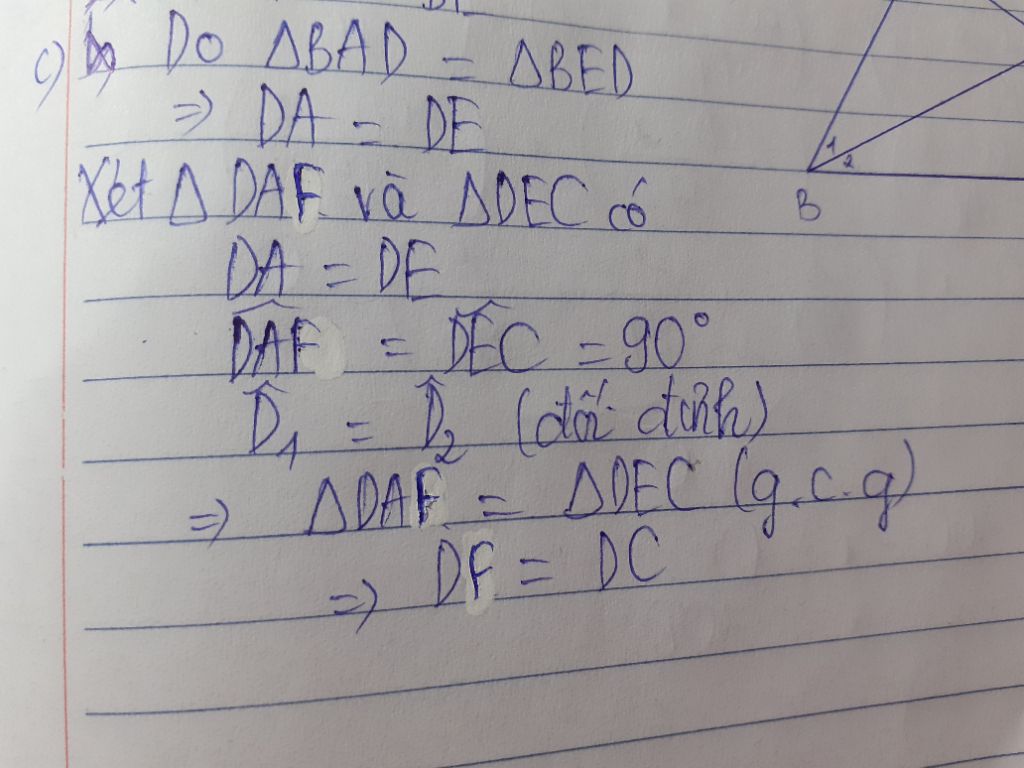 c) Do ΔBAD = ΔBED
⇒ DA = DE
Xét Δ DAF và ΔDEC có
DA = DE
\widehat{DAF} = \widehat{DEC} = 90°
\widehat{D}₁ = \widehat{D}₂ (đối đỉnh)
⇒ ΔDAF = ΔDEC (g.c.g)
⇒ DF = DC
1
2
B